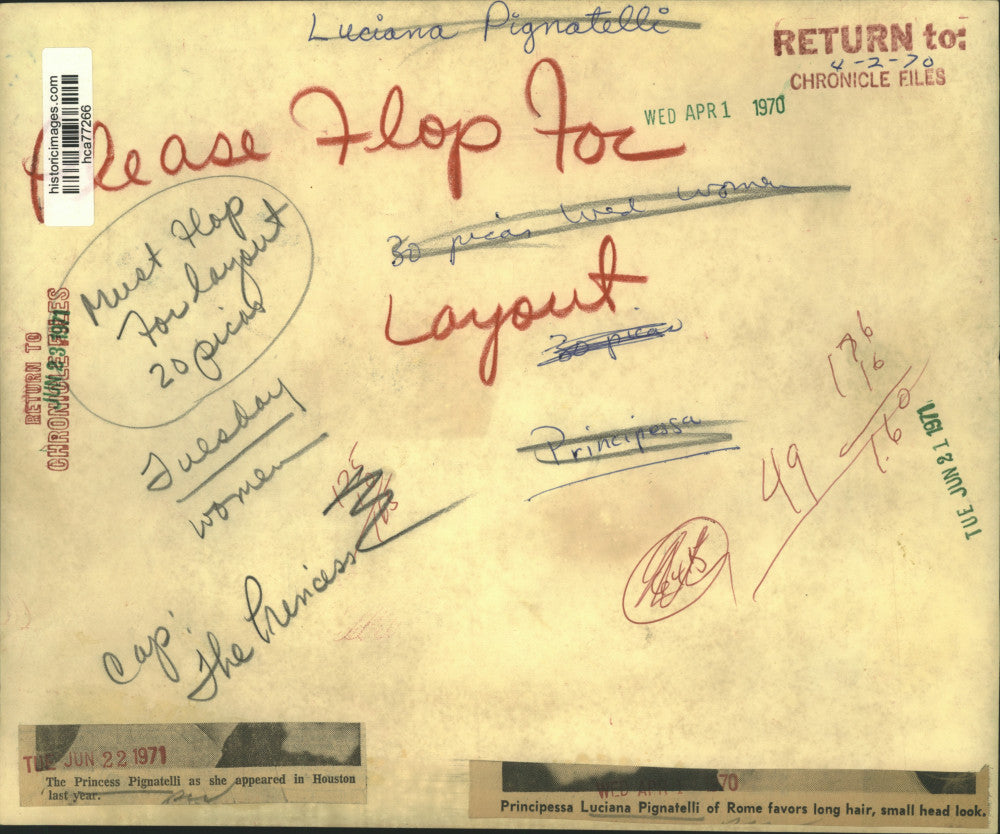 Luciana Pignatelli
RETURN to:
4-2-70
CHRONICLE FILES
WED APR 1 1970
historicimages.com
hca77266
Please Flop For
30 picas Wed women
Layout
30 picas
Must Flop
For layout
20 picas
RETURN TO
CHRONICLE FILES
JUN 23 1971
Tuesday
women
Principessa
176
16
160
49
TUE JUN 21 1971
125
cap:
The Princess
TUE JUN 22 1971
The Princess Pignatelli as she appeared in Houston
last year.
WED APR 1 70
Principessa Luciana Pignatelli of Rome favors long hair, small head look.